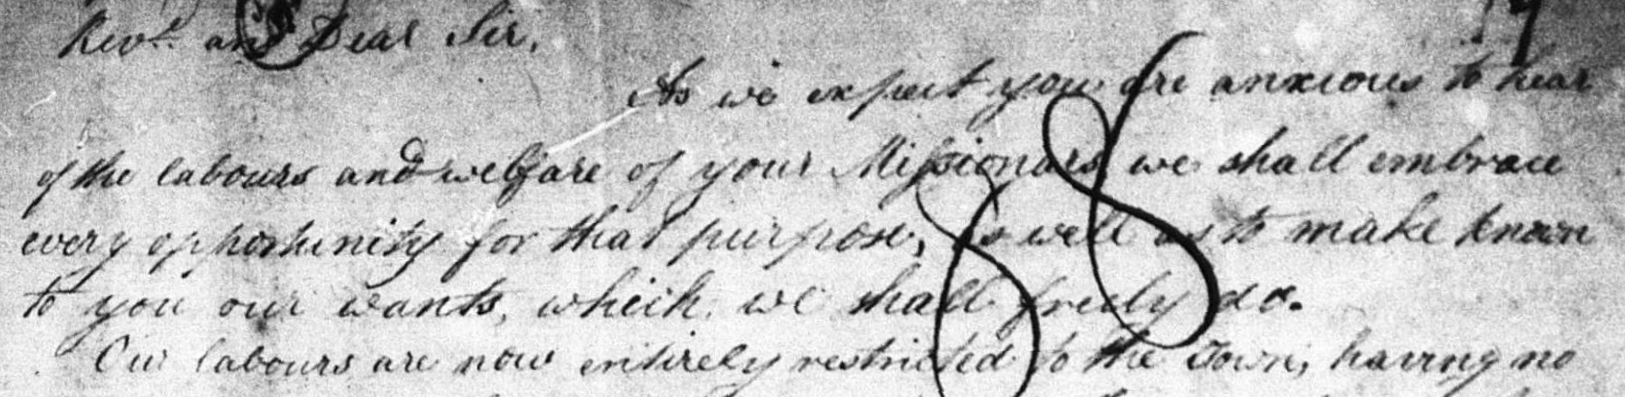 Revd. and Dear Sir,
As we expect you are anxious to hear
of the labours and welfare of your Missionars, we shall embrace
every opportunity for that purpose, as well as to make known
to you our wants, which we shall freely do.
Our labours are now entirely restricted to the Town, having no